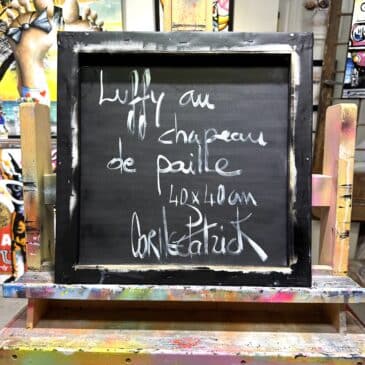 Luffy au
chapeau
de paille
40x40cm
Patrick